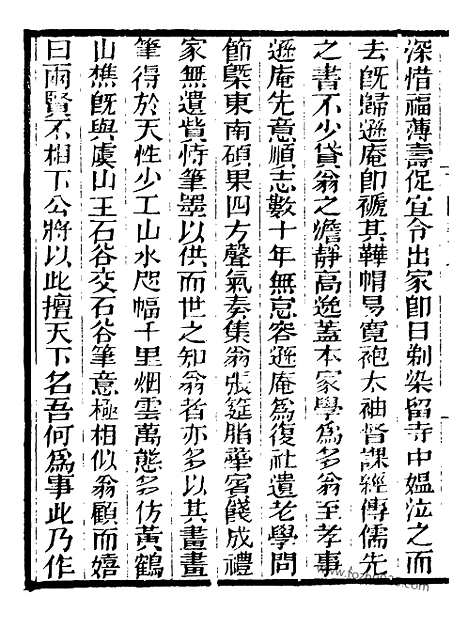 深惜福薄壽促宜令出家即日剃染留寺中媪泣之而
去旣歸遜庵即褫其鞾帽易寛袍大袖督課經傳儒先
之書不少貸翁之澹靜高逸蓋本家學爲多翁至孝事
遜庵先意順志數十年無怠容遜庵爲復社遺老學問
節槩東南碩果四方聲氣奏集翁張筵脂舝賓餞成禮
家無遺貲恃筆墨以供而世之知翁者亦多以其畫畫
筆得於天性少工山水咫幅千里烟雲萬態多仿黃鶴
山樵旣與虞山王石谷交石谷筆意極相似翁顧而嬉
曰兩賢不相下公將以此擅天下名吾何爲事此乃作